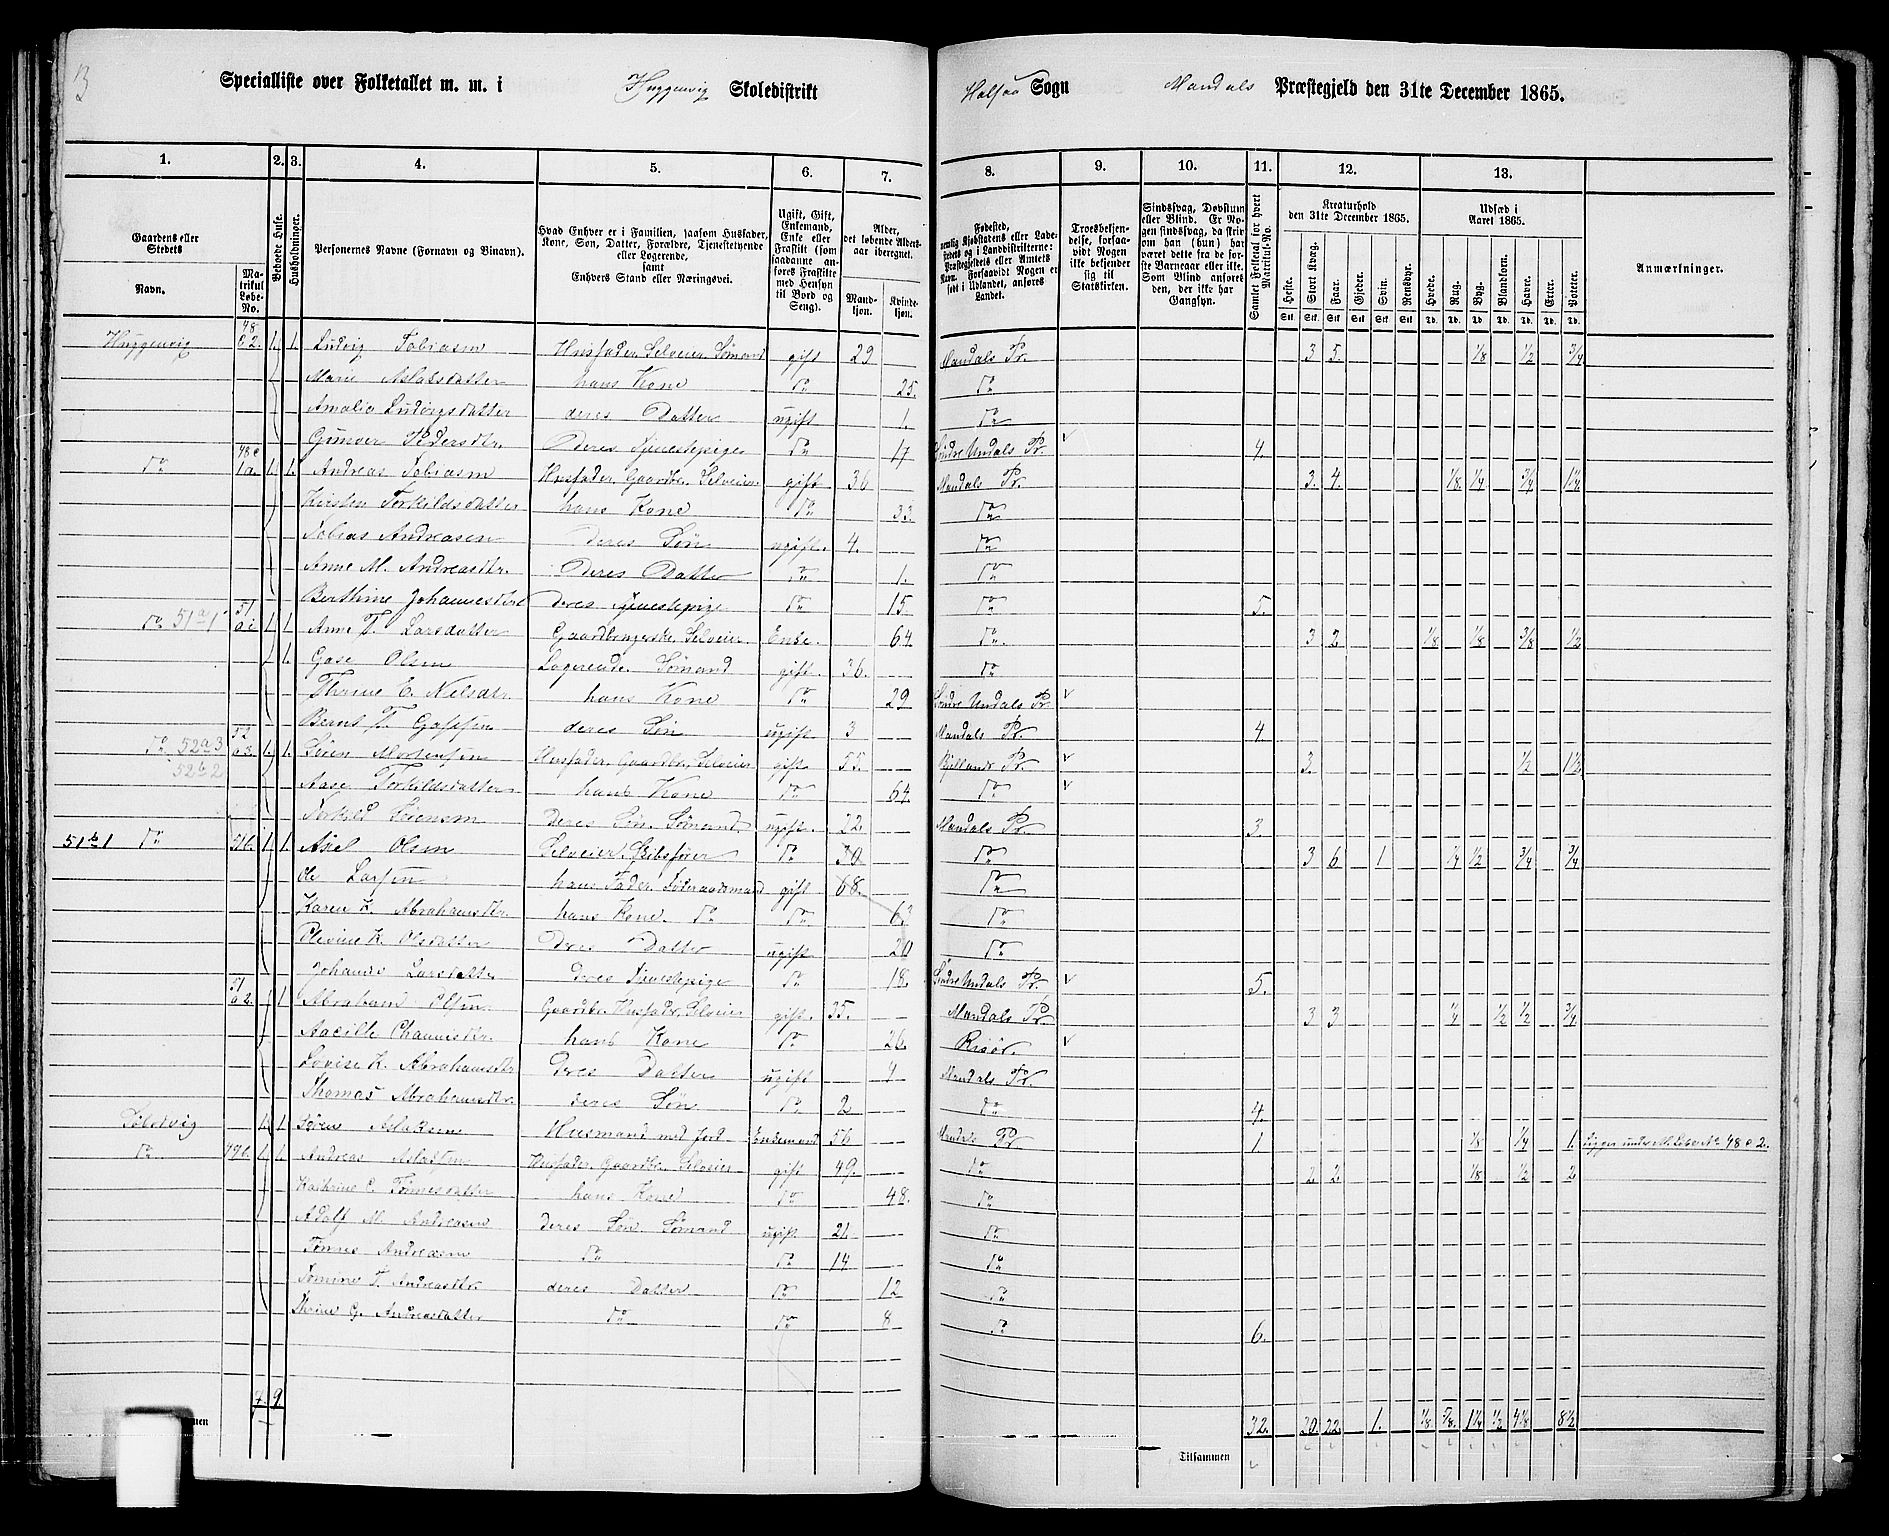 13
Specialliste over Folketallet m. m. i Huggenvig Skoledistrikt Halsaa Sogn Mandals Præstegjeld den 31te December 1865.
1. 2. 3. 4. 5. 6. 7. 8. 9. 10. 11. 12. 13.
Gaardens eller Stedets
Navn.
Matrikul Løbe-No.
Beboede Huse.
Husholdninger.
Personernes Navne (Fornavn og Tilnavn).
Hvad Enhver er i Familien, saasom Husfader, Kone, Søn, Datter, Forældre, Tjenestetyende eller Logerende, samt Enhvers Stand eller Næringsvei.
Ugift, Gift, Enkemand, Enke eller Fraskilt (som saadanne anføres Fraskilte med Hensyn til Bord og Seng).
Alder, det løbende Alders-aar iberegnet.
Mand-kjøn. Kvinde-kjøn.
Troesbekjendelse, forsaavidt Nogen ikke bekjender sig til Statskirken.
Sindssvag, Døvstum eller Blind.
Kreaturhold den 31te December 1865.
Heste. Stort Kvæg. Faar. Gjeder. Svin. Rensdyr.
Udsæd i Aaret 1865.
Hvede. Rug. Byg. Blandkorn. Havre. Erter. Poteter.
Anmærkninger.
Huggenvig 48 c 2. 1. 1. Ludvig Tobiasen Husfader Selveier Sømand gift 29 Mandals Pr. 3 5. 1/8 1/2 3/4
Marie Aslaksdatter hans Kone do 25. do
Amalia Ludvigsdatter deres Datter ugift 1. do
Gunvor Pedersdtr. Deres Tjenestepige do 17 Søndre Undals Pr. 4.
do 48 c 1a. 1. 1. Andreas Tobiasen Husfader Gaardbr. Selveier gift 36 Mandals Pr. 3. 4. 1/8. 1/4 3/4 1 1/4
Kirsten Torkildsdatter hans Kone do 33. do
Tobias Andreasen Deres Søn ugift. 4. do
Anne M. Andreasdtr. Deres Datter do 1. do
Berthine Johannesdtr deres Tjenestepige do 15 do 5.
do 51 a 1 51 a 1 1 Anne T. Larsdatter Gaardbrugerske. Selveier Enke. 64. do 3 2 1/8 1/8 3/8 1/2
1. Olsen Logerende. Sømand gift 36. do
Thrine E. Nelsdtr. hans Kone do 29 Søndre Undals Pr.
Bernt T. deres Søn ugift 3 Mandals Pr. 4.
do 52 a 3 52 a 3. 1. 1. Søren Mortensen Husfader, Gaardbr. Selveier gift 55. Pr. 3. 1/2 1 1/2
52 b 2 Aase Torkildsdatter hans Kone do 64. do
Torkild Sørensen Deres Søn. Sømand ugift. 22. Mandals Pr. 3.
51 b 1 do 51b. 1 1. Axel Olsen Selveier Skibsfører do 30 do 3 6 1 1/4 1/2 3/4 3/4
Ole Larsen hans Fader gift 68. do
Karen K. Abrahamsdtr. hans Kone. do do 63 do
K. Olsdatter Deres Datter ugift 20 do
Johanne Larsdatter deres Tjenestepige do 18. Søndre Undals Pr. 5.
51 a 2. 1 1 Abraham Olsen Gaardbr. Husfader, Selveier gift. 35. Mandals Pr. 3 3 1/4 1/2 1/2 3/4
hans Kone do 26. Risør.
Lovise K. Abrahamsdtr Deres Datter ugift 4 Mandals Pr.
Thomas Abrahamsdtr. deres Søn do 2 do 4.
1. 1 Søren Aslaksen Husmand med Jord Enkemand 56 Mandals Pr 1 1/8 1/4 1. Ligger under M. Løbe No 48 c 2.
do 49b. 1. 1. Andreas Aslaksen Husfader. Gaardbr. Selveier gift 49. do 2 2 1/8 1/2 2
Kathrine C. Tønnesdatter hans Kone do 48. do
Adolf M. Andreasen deres Søn Sømand ugift 21. do
Tønnes Andreasen do do 14 do
Tomine T. Andreasdtr. deres Datter do 12 do
Thrine G. Andreasdatter do do 8 do 6.
7. 9
32. 20. 22. 1. 1/8 5/8. 1 1/4 1/2 4 1/8 8 1/2
Tilsammen